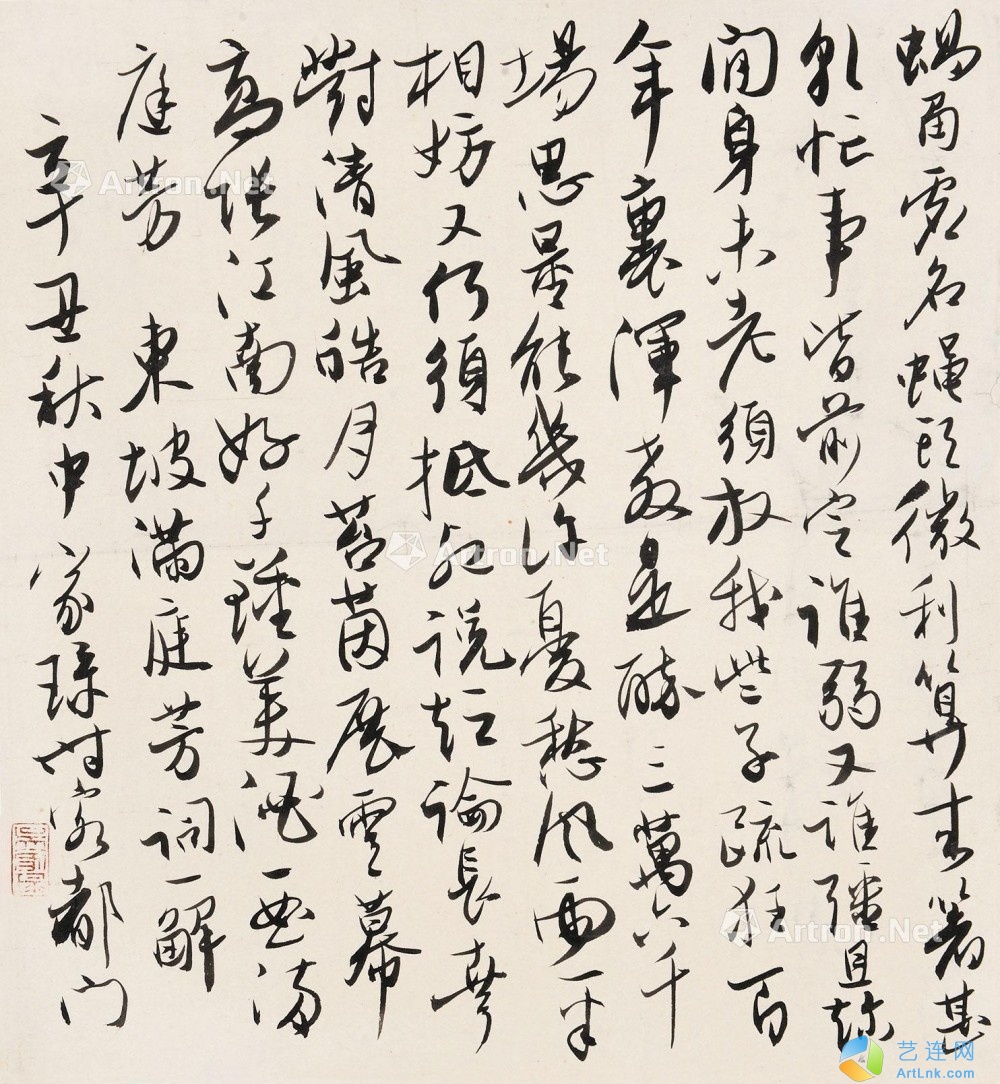 蝸角虛名蠅頭微利算來著甚
乾忙事皆前定誰弱又誰彊且趂
閒身未老須放我些子疏狂百
年裏渾教是醉三萬六千
場思量能幾許憂愁風雨一半
相妨又何須抵死說短論長幸
對清風皓月苔茵展雲幕
高張江南好千鍾美酒一曲滿
庭芳 東坡滿庭芳詞一解
辛丑秋中 家琭時客都門
Artron.Net
Artron.Net
Artron.Net
Artron.Net
艺连网
ArtLnk.com